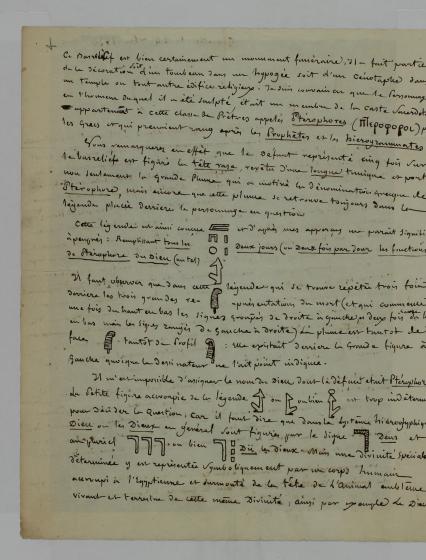 Ce Basrelief est bien certainement un monument funéraire, il a fait partie
de la décoration soit d'un tombeau dans un hypogée soit d'un Cénotaphe dans
un temple ou tout autre édifice religieux. Je suis convaincu que le Personnage
en l'honneur duquel il a été sculpté, était un membre de la Caste Sacerdot
appartenant à cette classe de Prêtres appelés Ptérophores (Πτεροφοροι) p
les Grecs et qui prennent rang après les Prophètes et les hierogrammates
Vous remarquerez en effet que le défunt représenté cinq fois sur
le basrelief est figuré la tête rase, revêtu d'une longue tunique et port
non seulement la Grande Plume qui a motivé la dénomination grecque de
Ptérophore, mais encore que cette plume se retrouve toujours dans le
légende placée derrière le personnage en question
Cette légende est ainsi conçue et d'après mes apperçus me parait signifi
àpeuprès: Remplissant tous les deux jours (ou deux fois par jour les fonction
de Ptérophore du Dieu (un tel)
Il faut observer que dans cette légende qui se trouve répétée trois foi
derrière les trois grandes re- présentations du mort (et qui commence
une fois du haut en bas les signes groupés de droite à gauche et deux fois
en bas mais les signes rangés de gauche à droite) La plume est tantôt de
face tantôt de Profil : Elle existait derrière la Grande figure à
Gauche quoique le dessinateur ne l'ait point indiqué.
Il m'est impossible d'assigner le nom du Dieu dont le défunt était Ptéropho
La Petite figure accroupie de la légende ou ou bien est trop indéterm
pour décider la question, car il faut dire que dans le Système hiéroglyphiq
Dieu ou les Dieux en général sont figurés par le signe Deus et
au pluriel ou bien Dii les Dieux. Mais une divinité spéciale
déterminée y est représentée symboliquement par un corps humain
accroupi à l'Egyptienne et surmonté de la tête de l'animal emblème
vivant et terrestre de cette même Divinité; ainsi par exemple Le Dieu